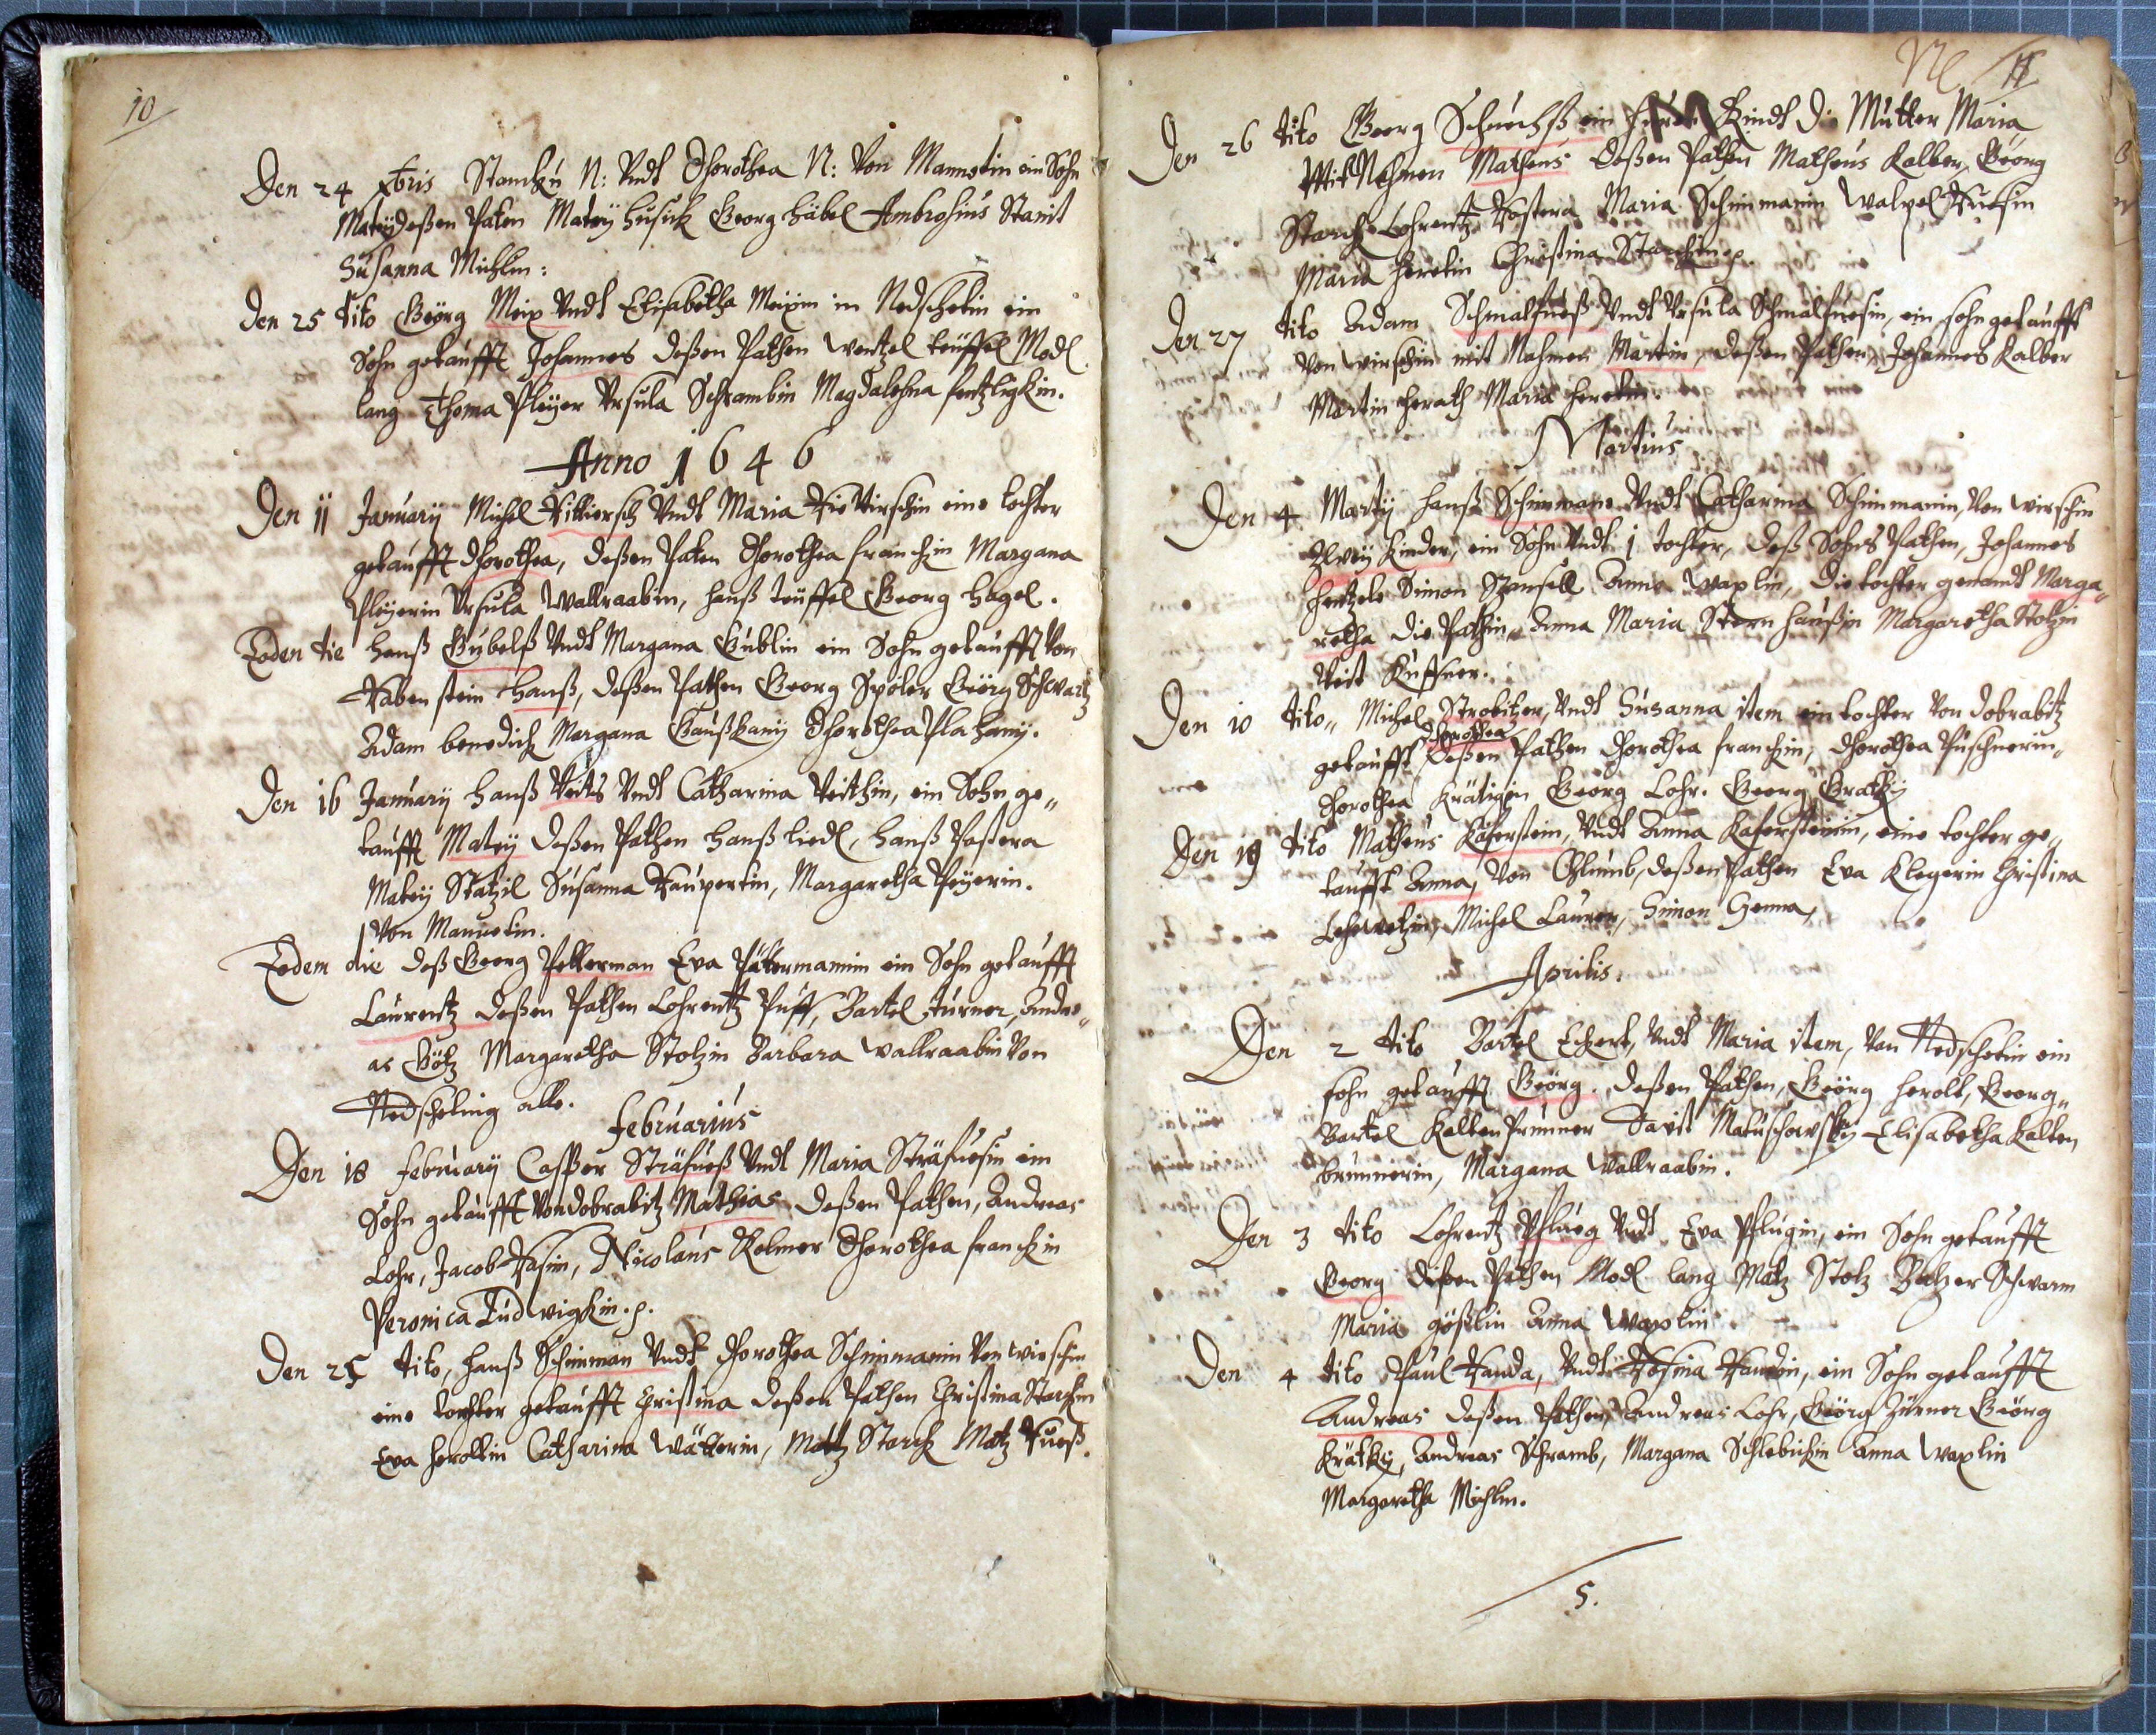 10
Den 24 xbris Stanckú N: Vndt Dorothea N: Von Mannetin ein Sohn
Mateÿ deßen Paten Mateÿ húsick Georg häbel Ambrosiús Stanit
Súsanna Michlin:
Den 25 dito Geörg Meix Vndt Elisabetha Meixin in Nedschetin ein
Sohn getaúfft Johannes deßen Pathen Wentzel teúffel Modl
lang Thoma Pleÿer Vrsula Schrambin Magdalehna
Anno 1646
Den 11 Januarÿ Michl Vndt Maria eine tochter
getaúfft Dhorothea, deßen Paten Dhorothea franckin Margana
Pleÿerin Vrsula Wallraabin, hanß teúffel Georg hagel.
Eoden die hanß Gúbelß Vndt Margana Gúblin ein Sohn getaúfft Von
Rabenstein Hanß, deßen Pathen Georg Spöler Geörg Schwartz
Adam benedick Margana Dhorothea
Den 16 Januarÿ hanß Veits Vndt Catharina Veithin, ein Sohn ge„
taúfft Mateÿ deßen Pathen hanß liedl, hanß Paßera
Mateÿ Statzil Súsanna Raúpertin, Margaretha Peÿerin.
Von Mannetin.
Eodem die deß Georg Petterman Eva Pättermannin ein Sohn getaúfft
Laúrentz deßen Pathen Lohrentz Púff, Bartel túrner Andre„
as Götz Margaretha Stolzin Barbara Wallraabin Von
Nedscheting alle.
Februariús
Den 18 februarÿ Casper Sträfúeß Vndt Maria Sträfúesin ein
Sohn getaúfft Von dobrabitz Mathias, deßen Pathen, Andreas
Lohr, Jacob Nicolaús Kolmer Dhorothea franckin
Veronica Lúdwigkin.
Den 25 dito, hanß Schinman Vndt Dhorothea Schinmanin Von Wirschin
eine tochter getaúfft Christina deßen Pathen Christina Starckin
Eva heroltin Catharina Wätterin, Matz Starck Matz Fúeß.
11
Den 26 dito Georg Schúechß ein húren Kindt Die Mútter Maria
Mit Nahmen Matheús deßen Pathen Matheús Kalber, Georg
Starck Lohrentz Kostera Maria Schinmanin Walpel
Maria Christina Starckin
Den 27 dito Adam Schmalfúeß Vndt Vrsúla Schmalfúesin, ein sohn getaúfft
Von Wirschin mit Nahmen Martin, deßen Pathen, Johannes Kalber
Martin herolth Maria
Martiús
Den 4 Martÿ hanß Schinman Vndt Catharina Schinmanin, Von Wirschin
Zweÿ Kinder, ein Sohn Vndt 1 tochter, deß Sohns Pathen, Johannes
Simon Anna Waxlin, die tochter genandt Marga„
retha die Pathin, Anna Maria Stern haúßin Margaretha Stolzin
Veit Kúffner.
Den 10 dito„ Michel Strobitzer, Vndt Súsanna item ein tochter Von dobrabitz
Dhorothea
getaúfft deßen Pathen Dhorothea franckin, Dhorothea Púschnerin„
Dhorothea Krätigin Georg Lohr. Georg Gratkÿ
Den 19 dito Matheús Käferstein, Vndt Anna Käfersteinin, eine tochter ge„
taúfft Anna, Von Chlúmb, deßen Pathen Eva Klegerin Christina
Michel Laúrer, Simon
Aprilis.
Den 2 dito Bartel Eckert, Vndt Maria item, Von Nedschetin ein
sohn getaúfft Geörg. deßen Pathen, Geörg herolt, Georg„
Bartel Kaltenprunner Davit Matúschowskÿ Elisabetha Kalten
brunnerin, Margana Wallraabin.
Den 3 dito Lohrentz Pflúeg Vndt Eva Pflúgin, ein Sohn getaúfft
Georg deßen Pathen Modl lang Matz Stolz Baltzer Schwarm
Maria gößlin Anna Waxlin
Den 4 dito Paúl Handa, Vndt Rosina Handin, ein Sohn getaúfft
Andreas deßen Pathen, Andreas Lohr, Geörg Zúrner Geörg
Krätkÿ, Andreas Schramb, Margana Schlebickin Anna Waxlin
Margaretha Michlin.
5.